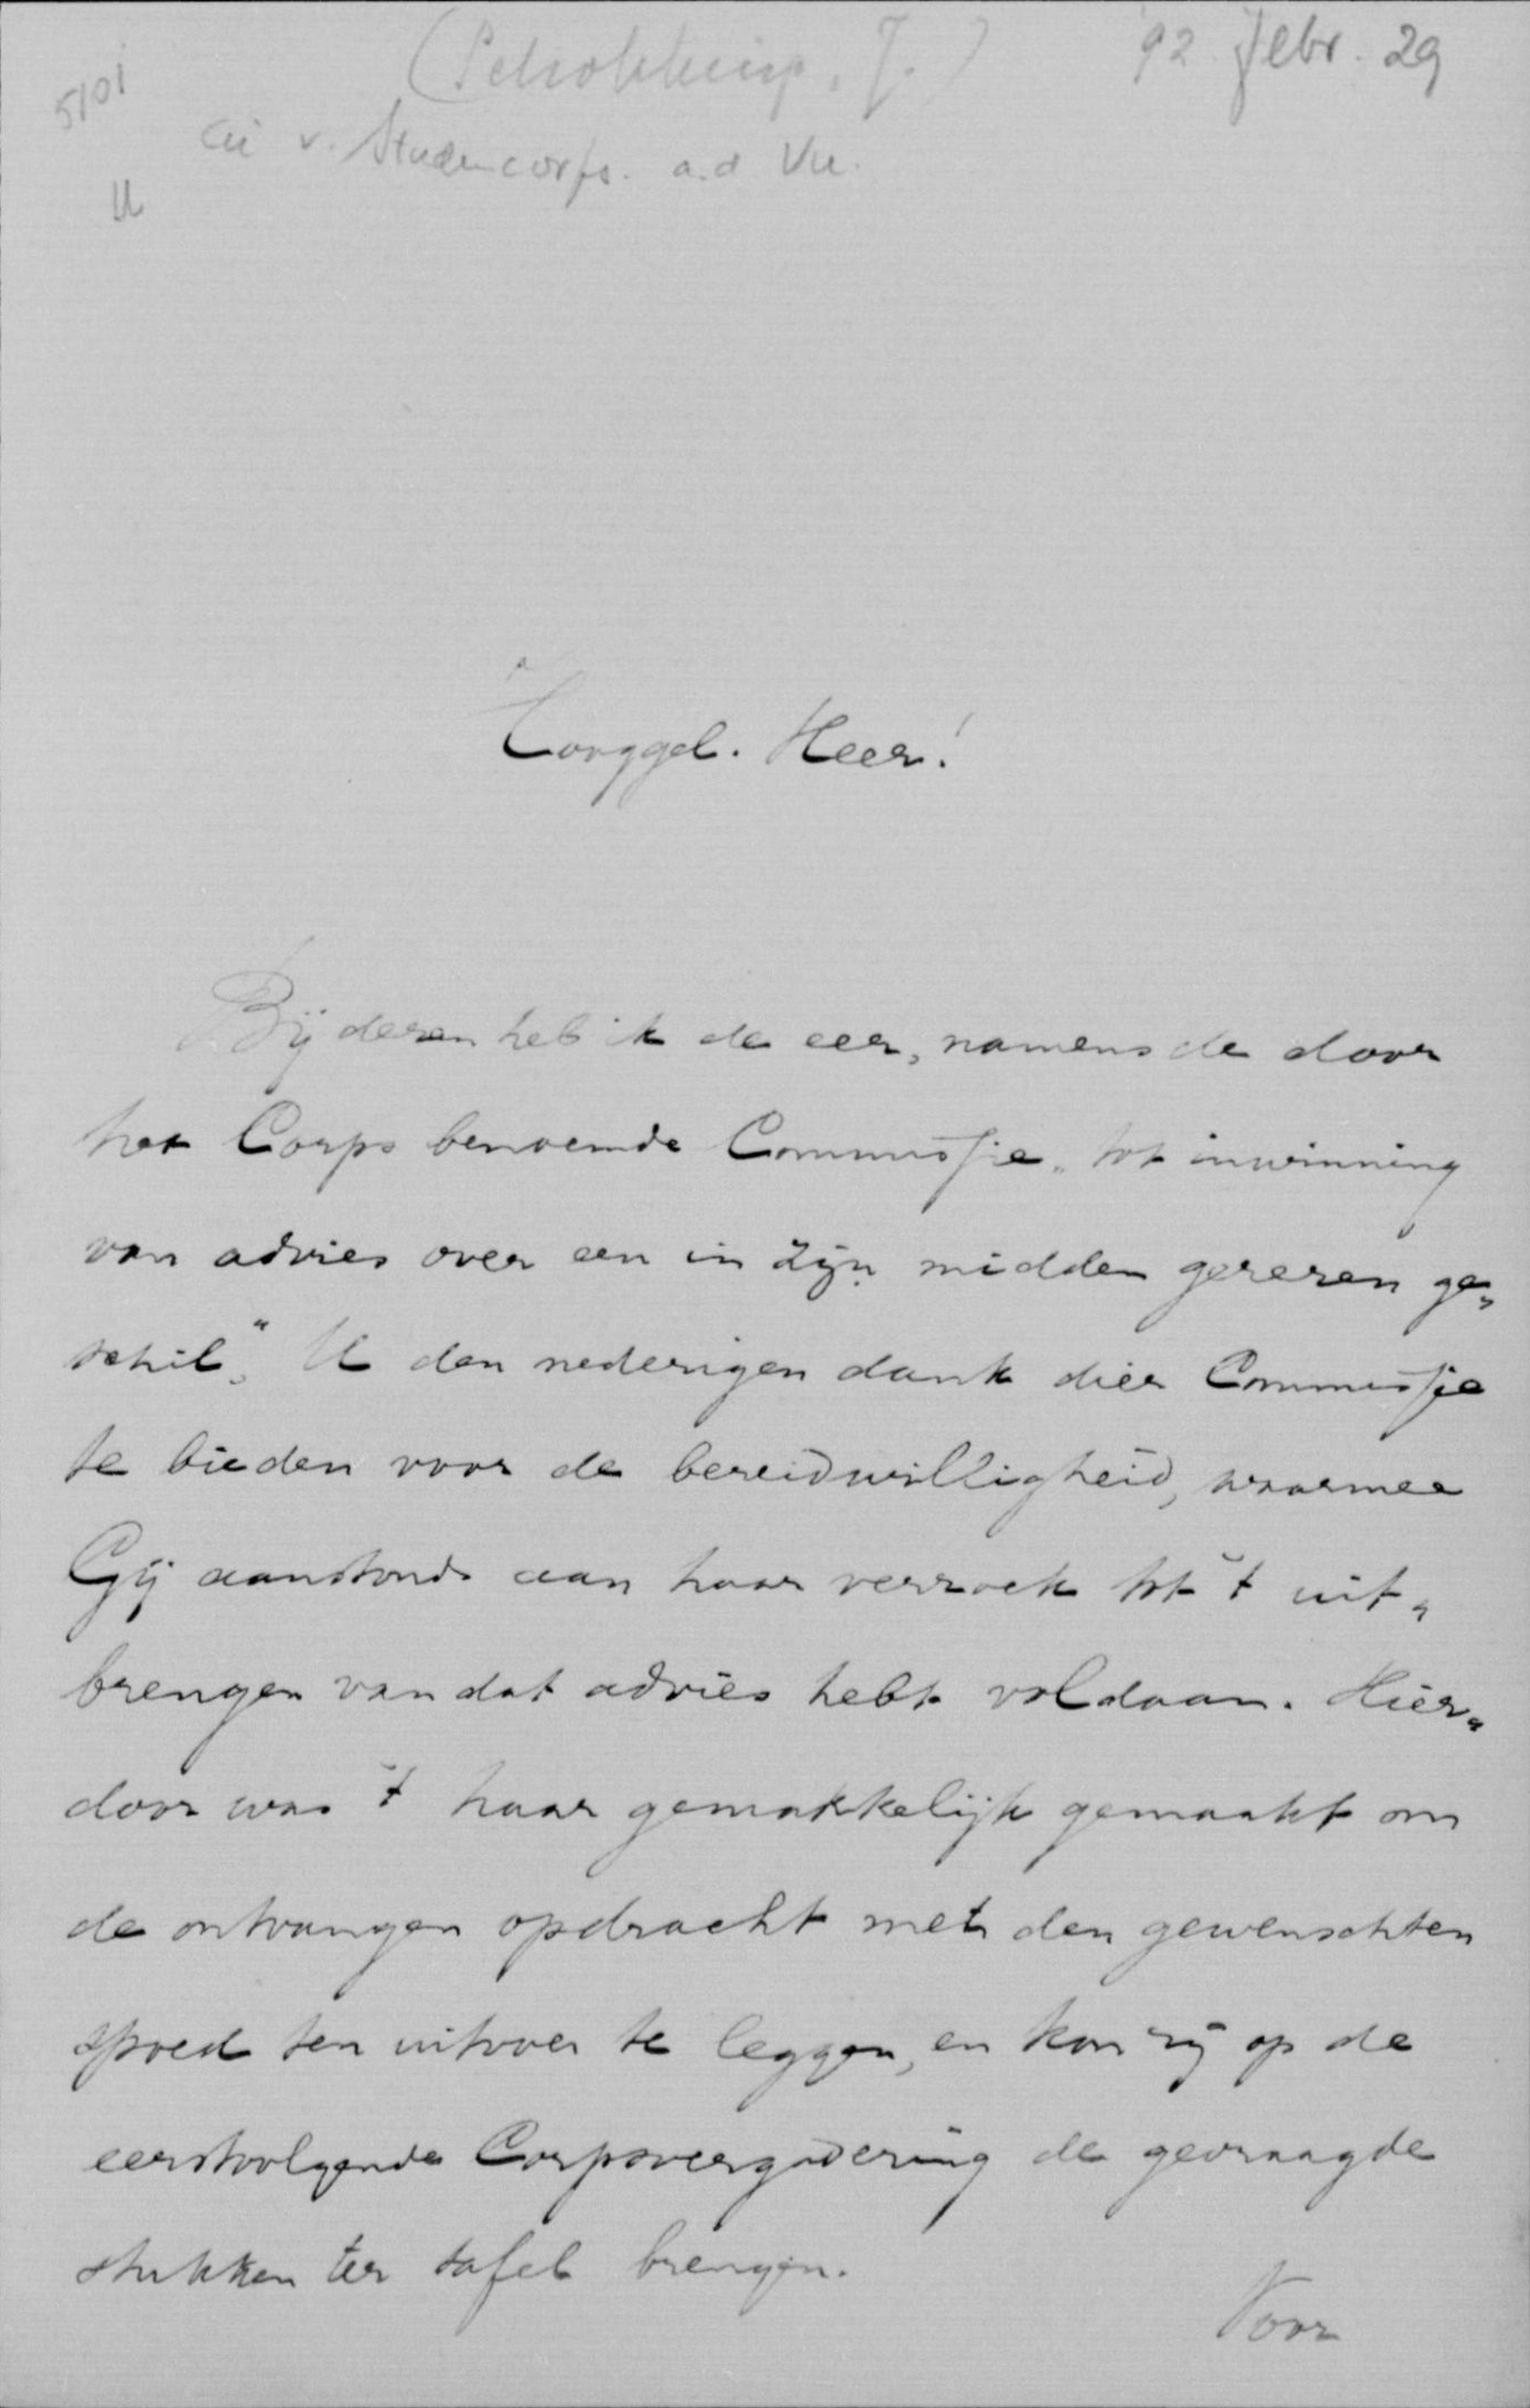 (Schokking, J.) '92 Febr. 29
5101
cie v. Studencorps. a.d. Vu.
U
Hooggel. Heer!
Bij dezen heb ik de eer, namens de door
het Corps benoemde Commissie „tot inwinning
van advies over een in zijn midden gerezen ge„
schil", U den nederigen dank dier Commissie
te bieden voor de bereidwilligheid, waarmee
Gij aanstonds aan haar verzoek tot 't uit„
brengen van dat advies hebt voldaan. Hier„
door was 't haar gemakkelijk gemaakt om
de ontvangen opdracht met den gewenschten
spoed ten uitvoer te leggen, en kon zij op de
eerstvolgende Corpsvergadering de gevraagde
stukken ter tafel brengen.
Voor